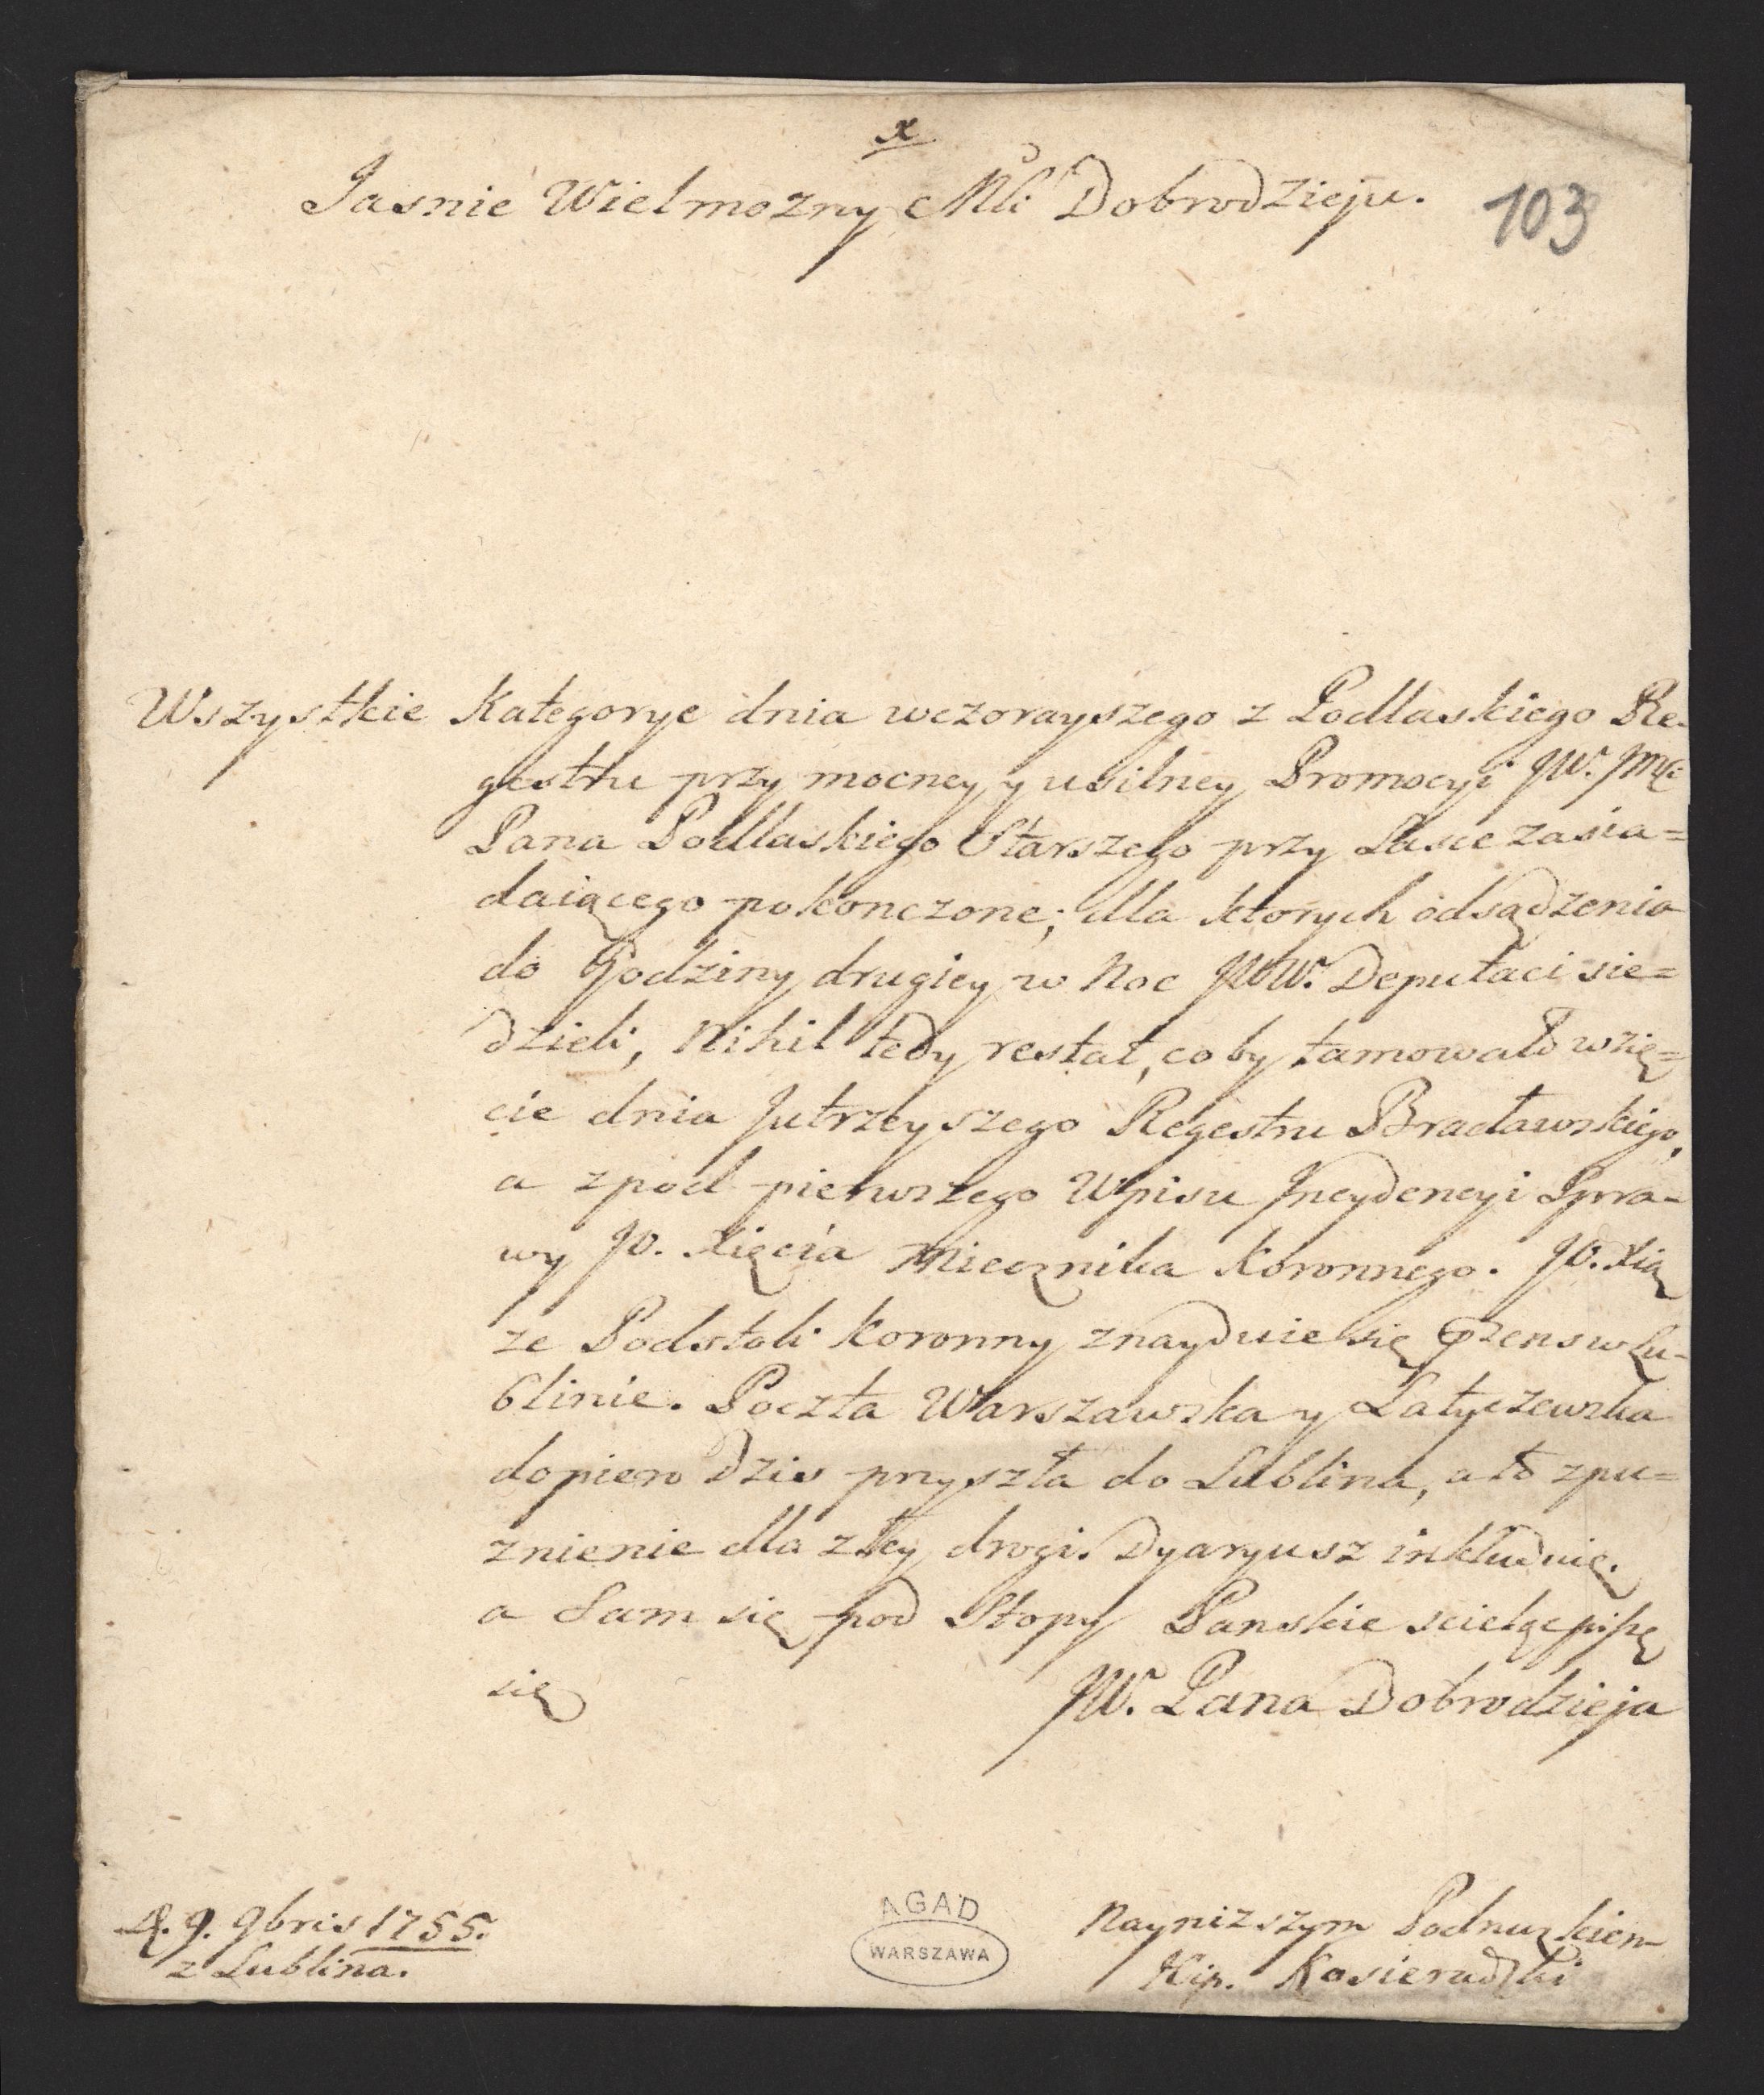 x
Jasnie Wielmozny Mći Dobrodzieju.
103
Wszystkie Kategorye dnia wczorayszego z Podlaskiego Re-
gestru przy mocney y usilney Promocyi JW. JMći
Pana Podlaskiego Starszego przy Lasce zasia=
daiącego pokonczone; dla ktorych odsądzenia
do Godziny drugiey w Noc JWW. Deputaci sie=
dzieli, Nihil tedy restat, co by tamowało wzię=
cie dnia Jutrzeyszego Regestru Bracławskiego,
a zpod pierwszego Wpisu Jncydencyi Spra-
wy JO. Xięcia Miecznika Koronnego. JO. Xią
ze Podstoli Koronny znayduie się Przens w Lu-
blinie. Poczta Warszawska y Latyczewska
dopiero dzis przyszła do Lublina, a to zpu=
znienie dla złey drogi. Dyaryusz inkluduię.
a Sam się pod Stopy Panskie scieląc piszę
się
JW. Pana Dobrodzieja
d. 9. 9bris 1755.
z Lublina.
AGAD
WARSZAWA
Nayniższym Podnuzkiem
Hip. Kosieradzki